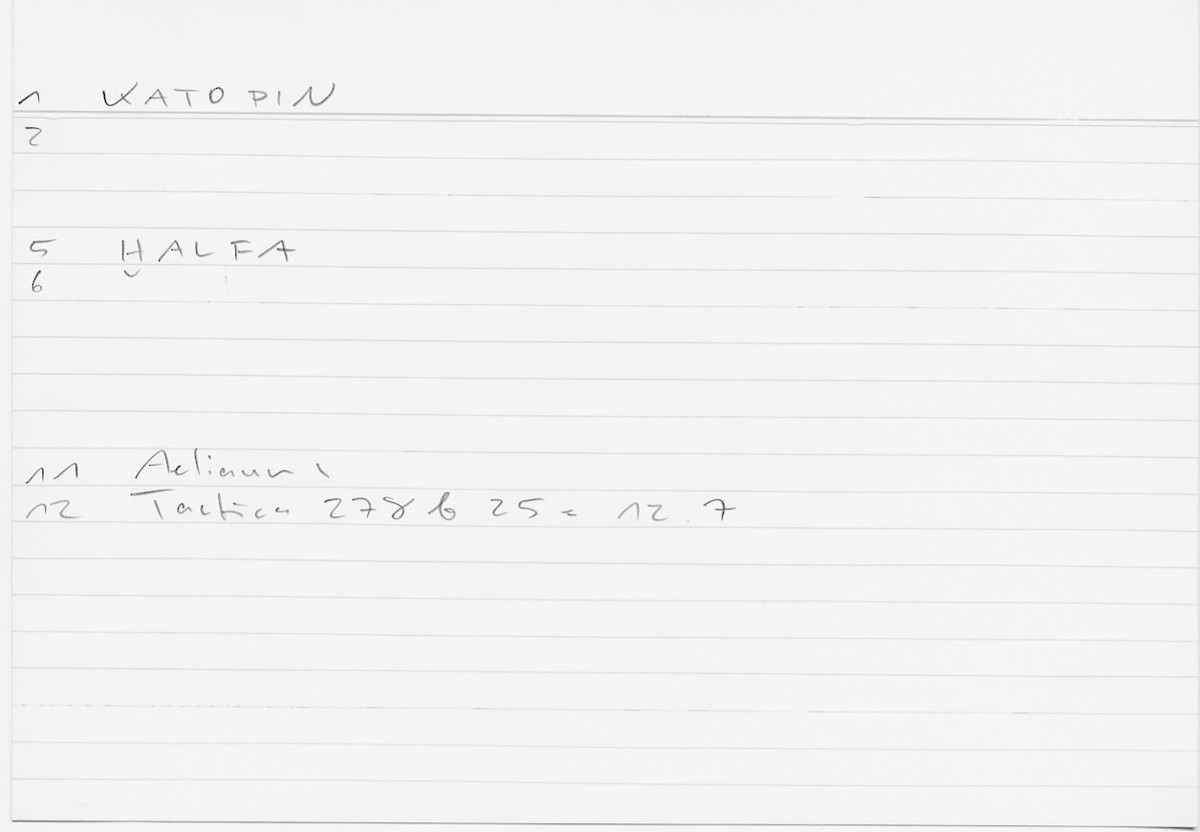 1 KATOPIN
2
5 ḪALFA
6
11 Aelianus,
12 Tactica 278 b 25 = 12.7